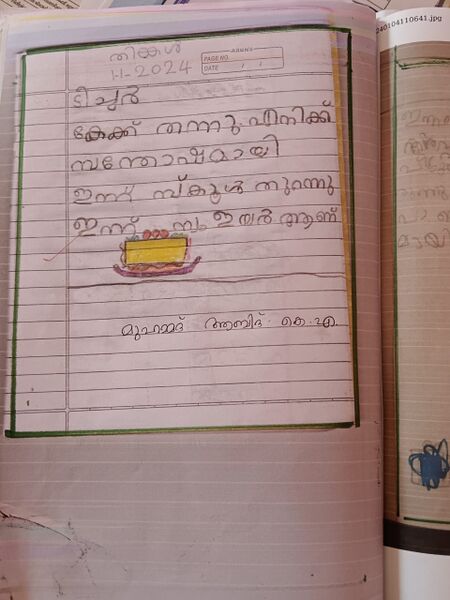 തിങ്കൾ
1-1-2024
PAGE NO.
DATE / /
ടീച്ചർ
കേക്ക് തന്നു എനിക്ക്
സന്തോഷമായി
ഇന്ന് സ്കൂൾ തുറന്നു
ഇന്ന് ന്യൂ ഇയർ ആണ്
മുഹമ്മദ് ആബിദ് കെ.എ.
240104110641.jpg